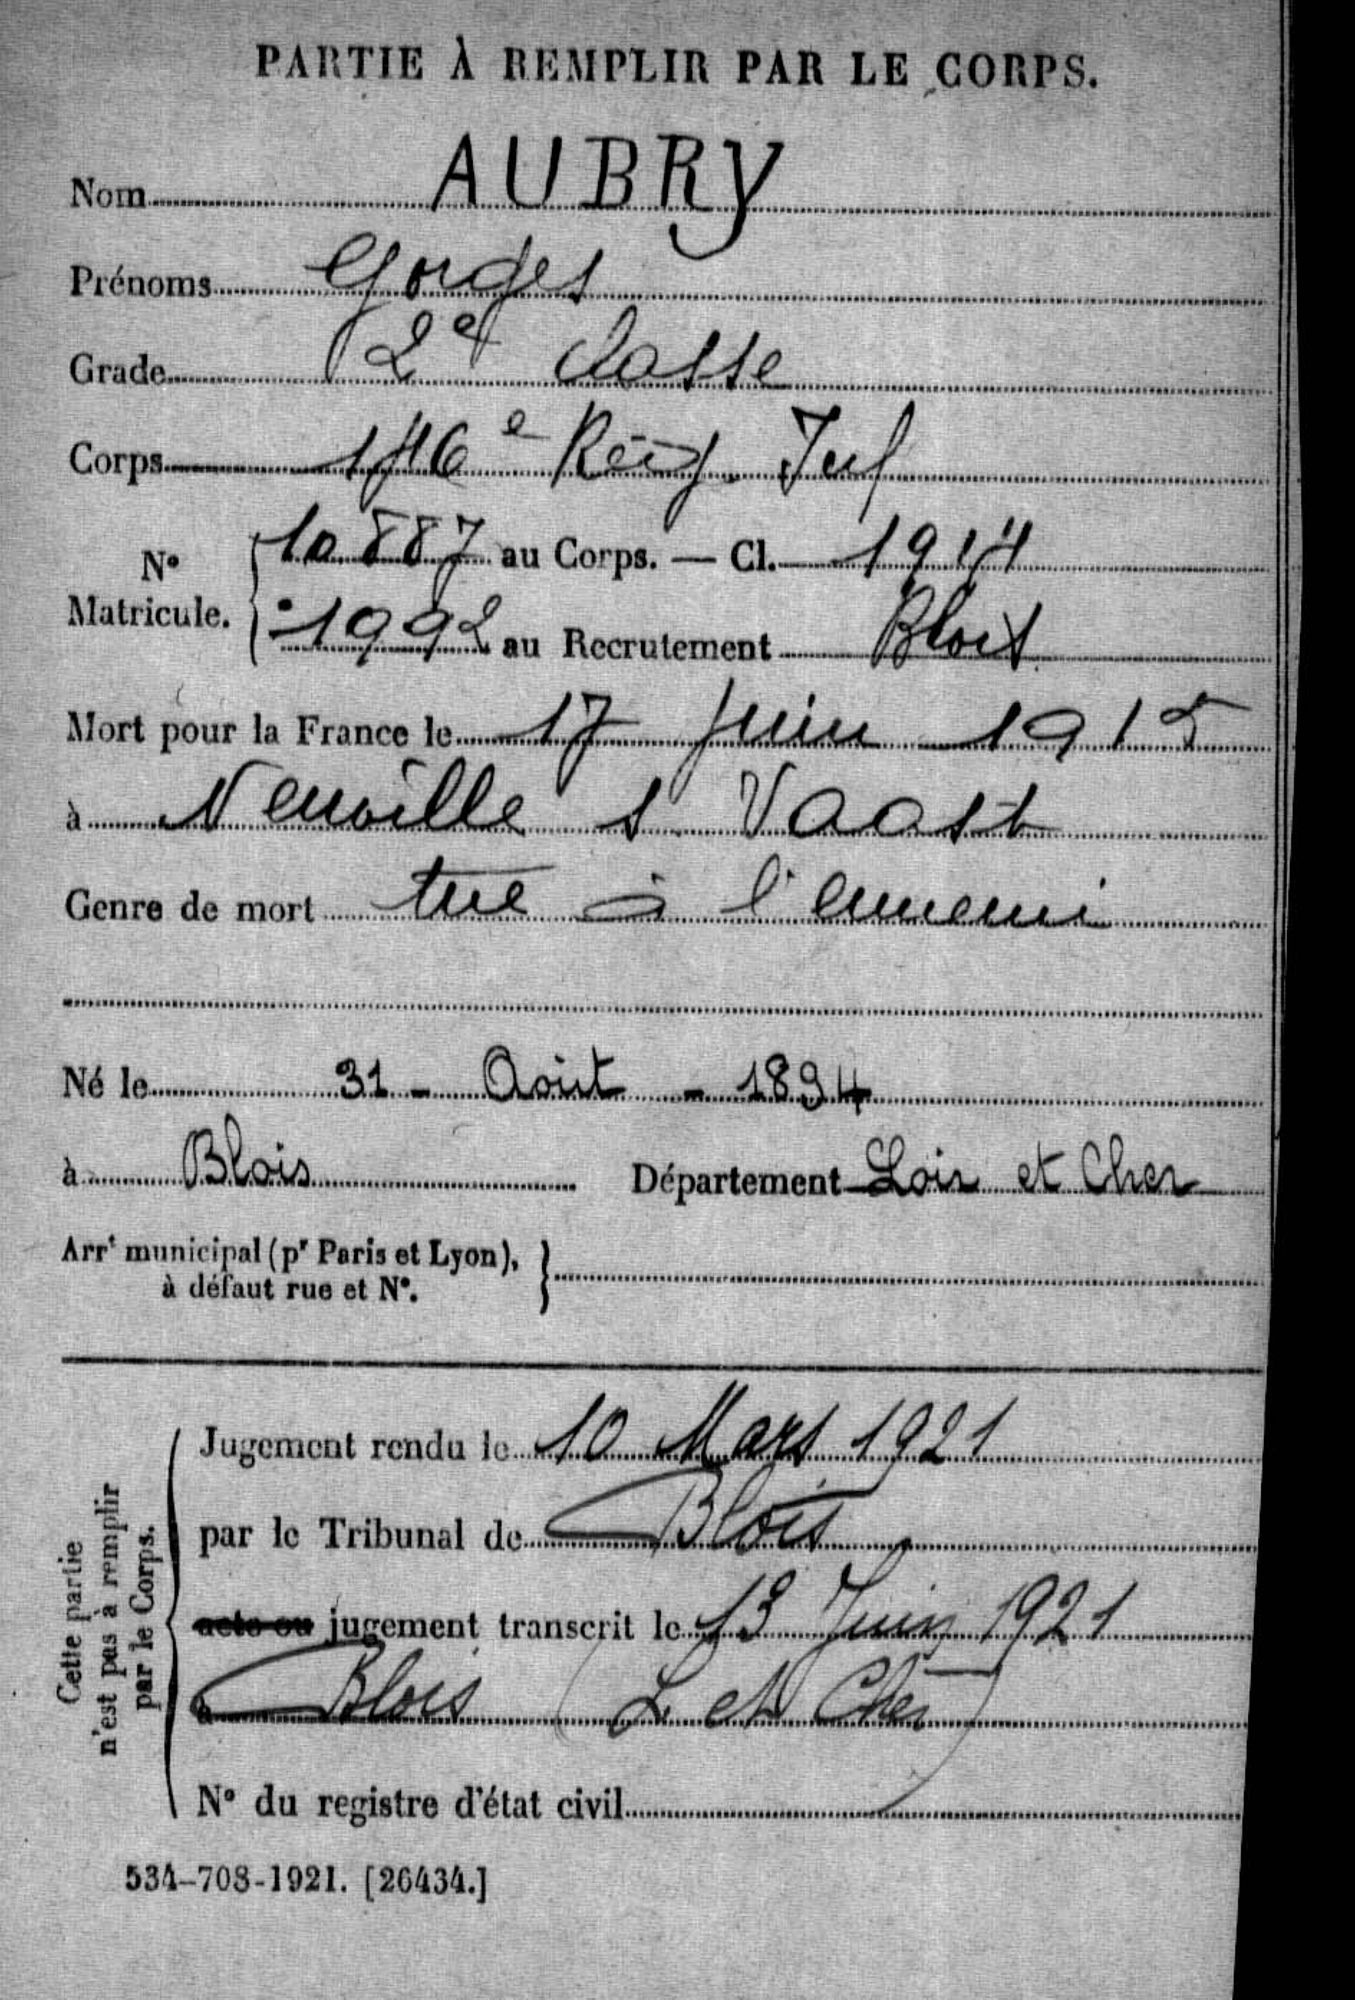 PARTIE À REMPLIR PAR LE CORPS.
Nom AUBRY
Prénoms Gorges
Grade 2e classe
Corps 146e Rég. Inf
N° Matricule. 10887 au Corps. — Cl. 1914
1992 au Recrutement Blois
Mort pour la France le 17 Juin 1915
à Neuville s Vaast
Genre de mort tué à l'ennemi
Né le 31 - Août - 1894
à Blois Département Loir et Cher
Arrt municipal (pr Paris et Lyon),
à défaut rue et N°.
Cette partie
n'est pas à remplir
par le Corps.
Jugement rendu le 10 Mars 1921
par le Tribunal de Blois
acte ou jugement transcrit le 13 Juin 1921
à Blois (L et Cher)
N° du registre d'état civil
534-708-1921. [26434.]